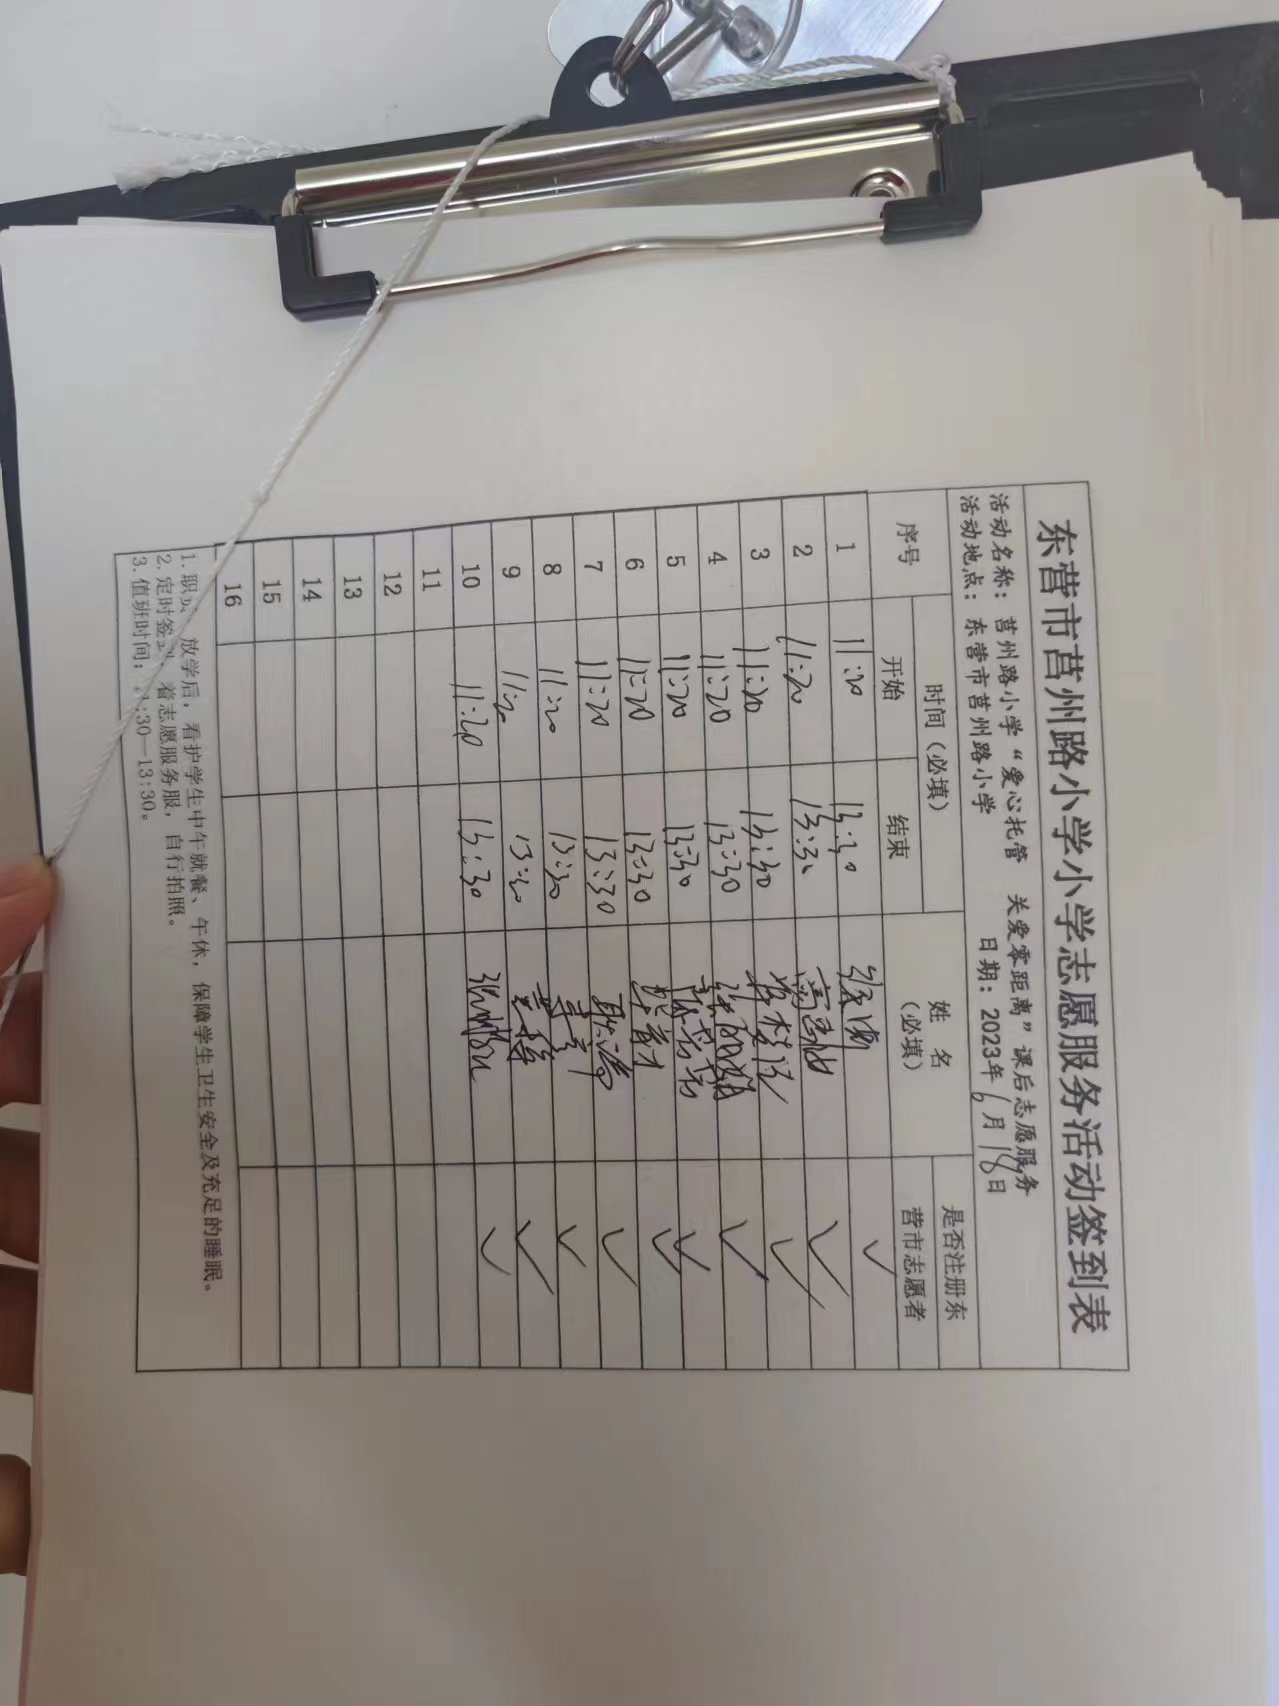 东营市莒州路小学小学志愿服务活动签到表
活动名称：莒州路小学“爱心托管 关爱零距离”课后志愿服务
活动地点：东营市莒州路小学 日期：2023年6月18日
序号 时间（必填） 姓名（必填） 是否注册东营市志愿者
开始 结束
1 11:20 13:30 ✓
2 11:20 13:30 ✓
3 11:20 13:30 ✓
4 11:20 13:30 ✓
5 11:20 13:30 ✓
6 11:20 13:30 ✓
7 11:20 13:30 ✓
8 11:20 13:30 ✓
9 11:20 13:30 ✓
10 11:20 13:30 ✓
11
12
13
14
15
16
1. 放学后，看护学生中午就餐、午休，保障学生卫生安全及充足的睡眠。
2. 定时签到，着志愿服务服，自行拍照。
3. 值班时间：:30—13:30。